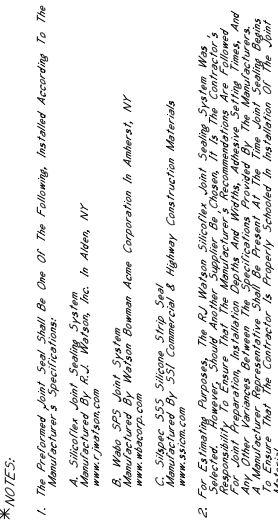 * NOTES:
1. The Preformed Joint Seal Shall Be One Of The Following, Installed According To The
Manufacturer's Specifications:
A. Silicoflex Joint Sealing System
Manufactured By R.J. Watson, Inc. In Alden, NY
www.rjwatson.com
B. Wabo SPS Joint System
Manufactured By Watson Bowman Acme Corporation In Amherst, NY
www.wbacorp.com
C. Silspec SSS Silicone Strip Seal
Manufactured By SSI Commercial & Highway Construction Materials
www.ssicm.com
2. For Estimating Purposes, The RJ Watson Silicoflex Joint Sealing System Was
Selected. However, Should Another Supplier Be Chosen, It Is The Contractor's
Responsibility To Ensure That The Manufacturer's Recommendations Are Followed
For Joint Preparation, Installation Depths And Widths, Adhesive Setting Times, And
Any Other Variances Between The Specifications Provided By The Manufacturers.
A Manufacturer Representative Shall Be Present At The Time Joint Sealing Begins
To Ensure That The Contractor Is Properly Schooled In Installation Of The Joint
Material.